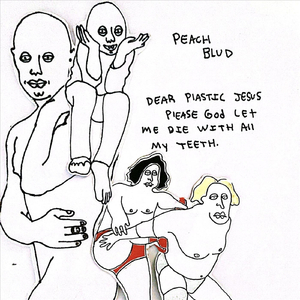 PEACH
BLUD
DEAR PLASTIC JESUS
PLEASE GOD LET
ME DIE WITH All
MY TEETH.